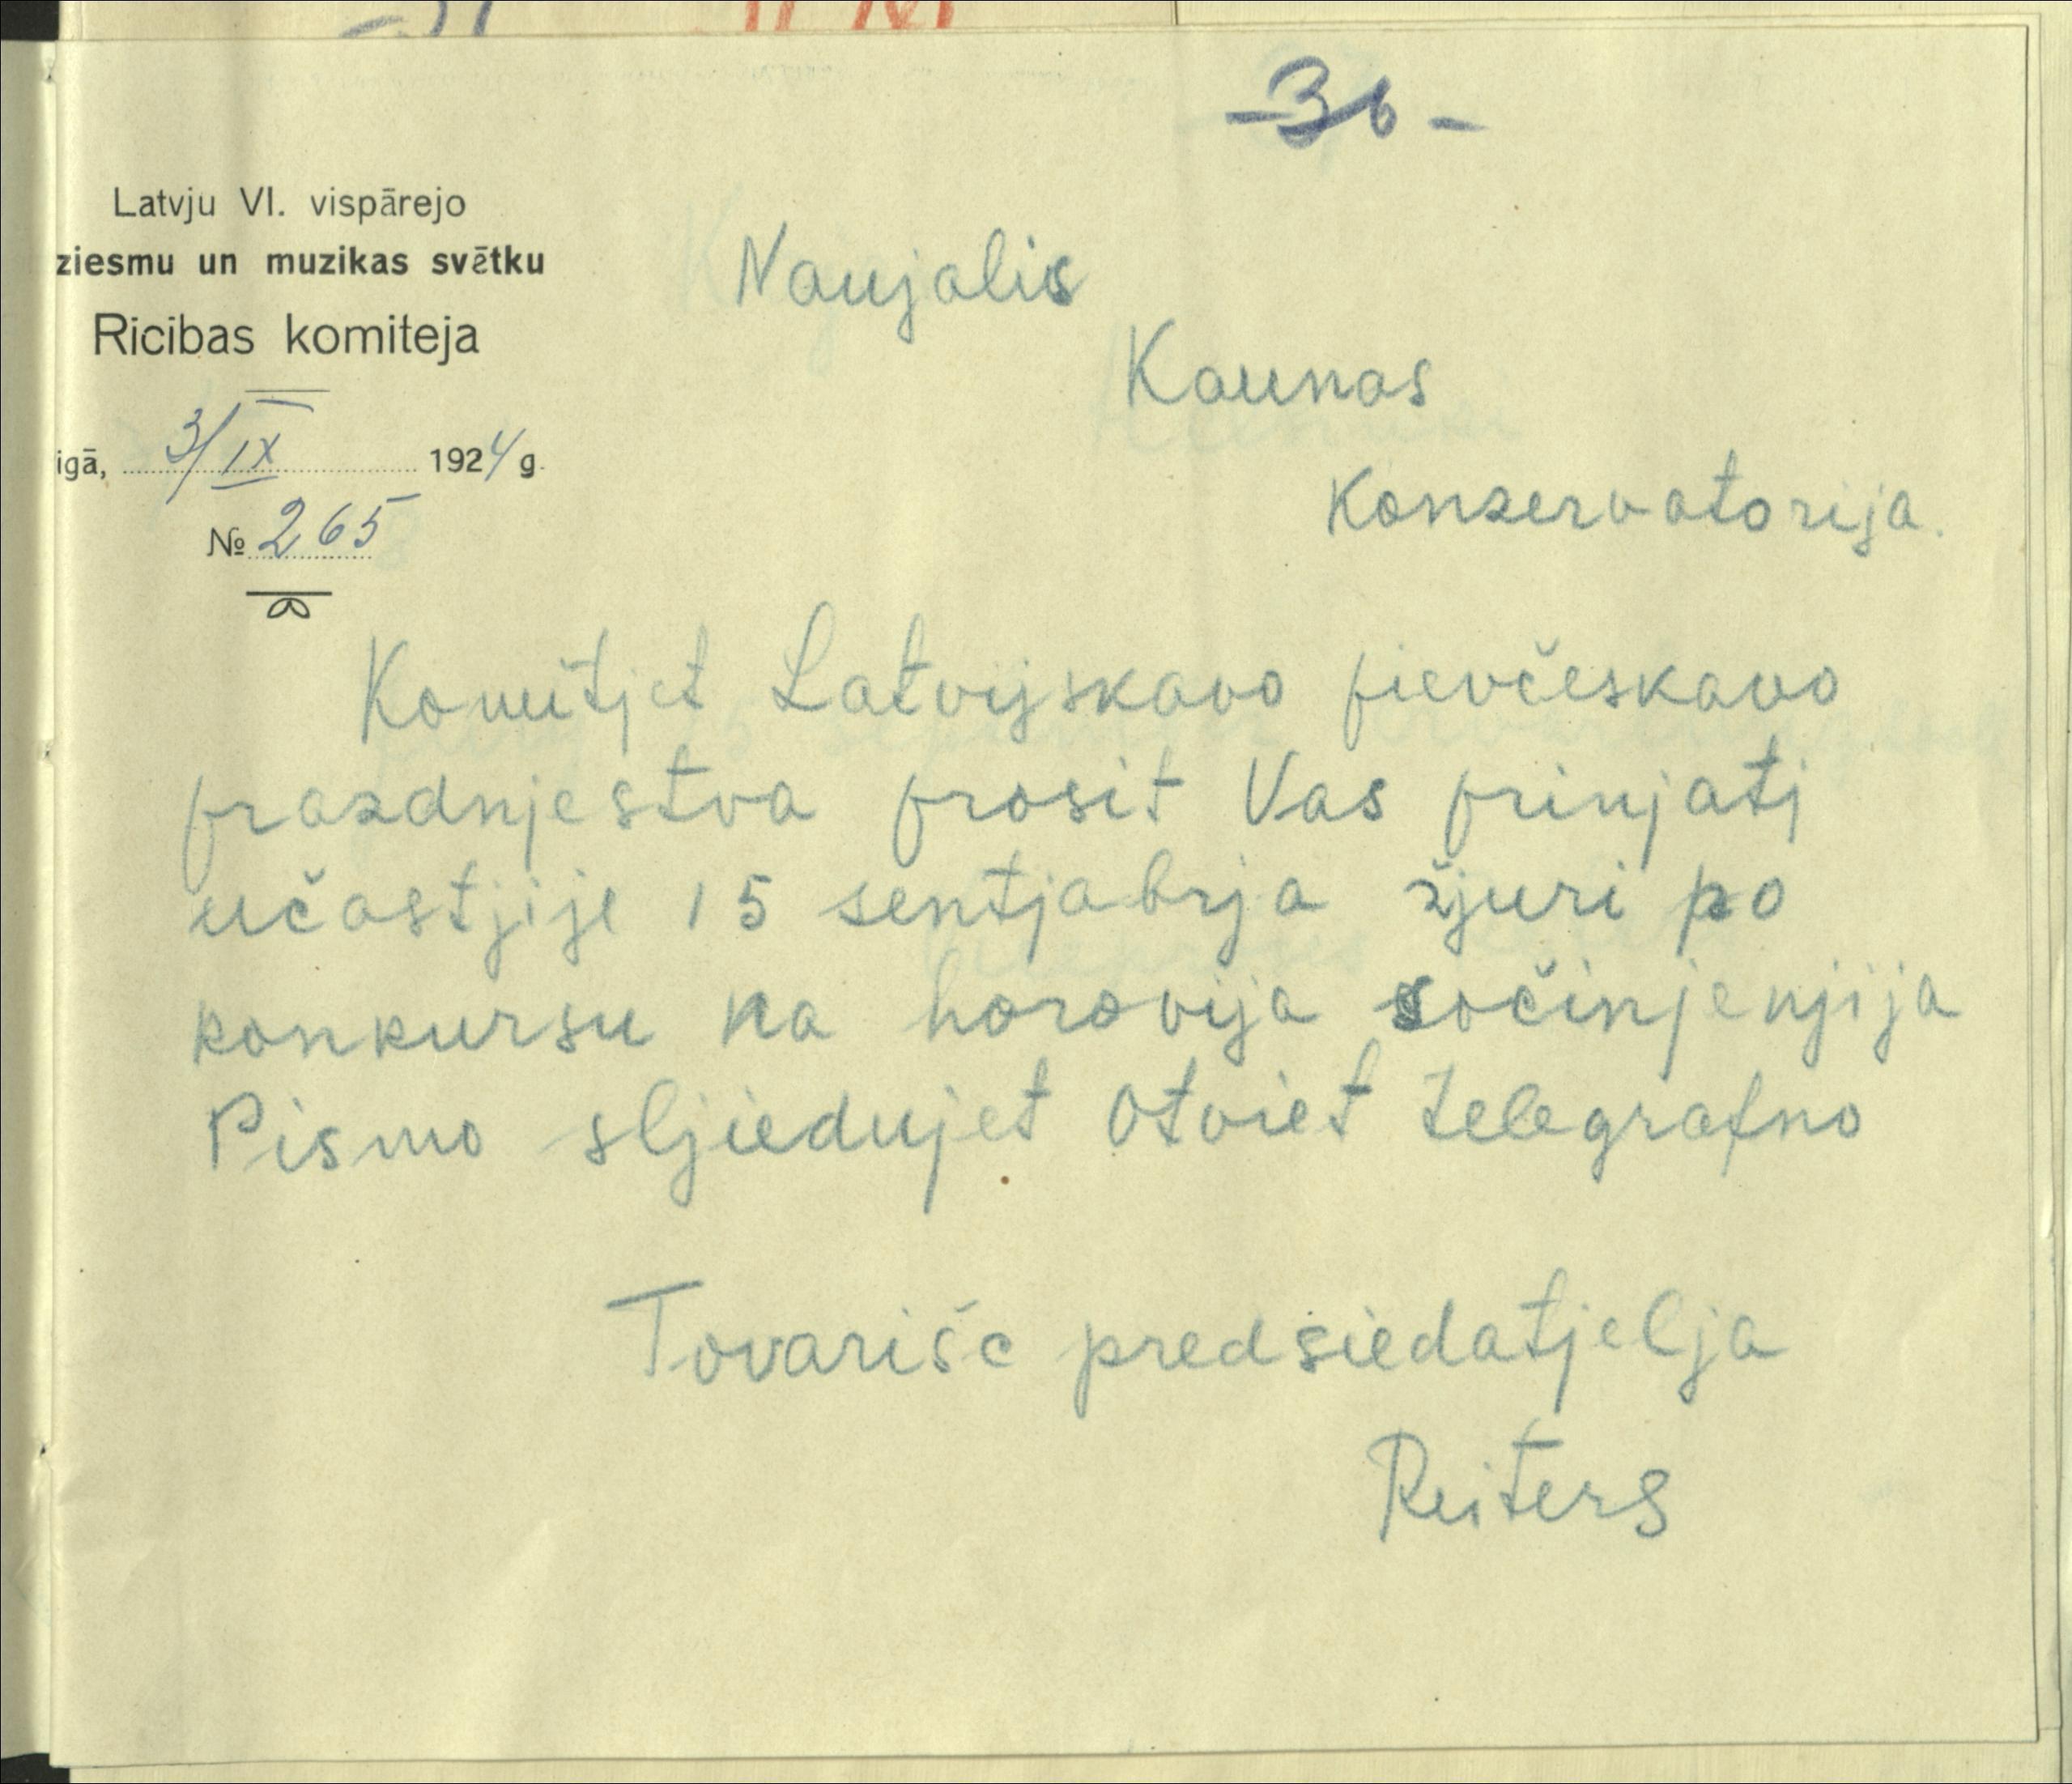 -36-
Latvju VI. vispārejo
ziesmu un muzikas svētku
Rīcibas komiteja
igā, 3/IX 1924 g.
№ 265
Naujalis
Kaunas
Konzervatorija.
Komitjet Latvijskavo pievčeskavo
prazdnjestva prosit Vas prinjatj
učastjije 15 sentjabrja žjuri po
konkursu na horovija sočinjenjija
Pismo sljiedujet otviet telegrafno
Tovarišc predsiedatjelja
Reiters